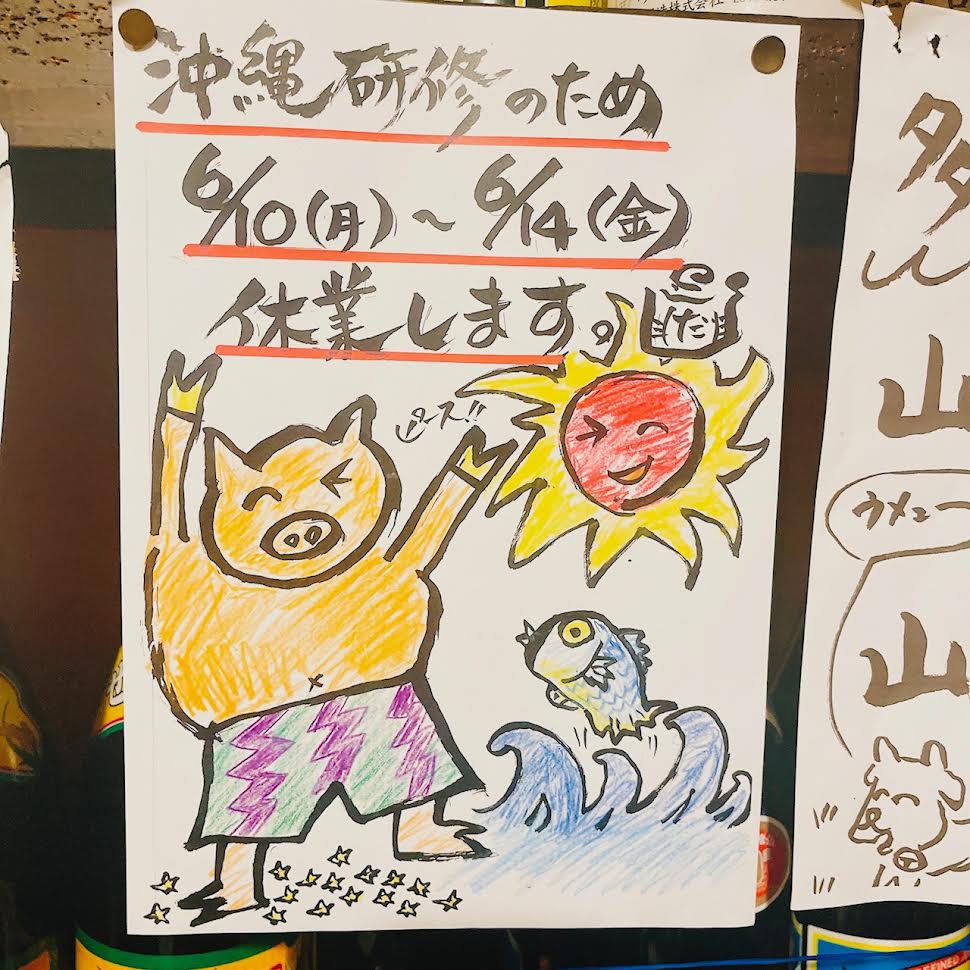 沖縄研修のため
6/10(月)〜6/14(金)
休業します。
ピース!!
多
山
ウメェー
山